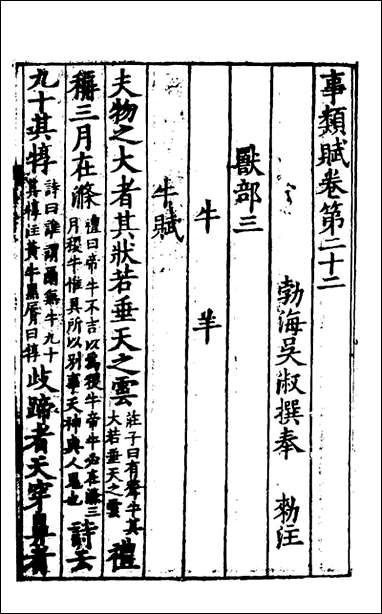 事類賦卷第二十二
勃海吳淑撰奉 勑注
獸部三
牛 羊
牛賦
夫物之大者其狀若垂天之雲莊子曰有犛牛其大若垂天之雲禮
稱三月在滌禮曰帝牛不吉以爲稷牛帝牛必在滌三月稷牛惟具所以別事天神與人鬼也詩云
九十其犉詩曰誰謂爾無牛九十其犉注黃牛黑脣曰犉歧蹄者天穿鼻者